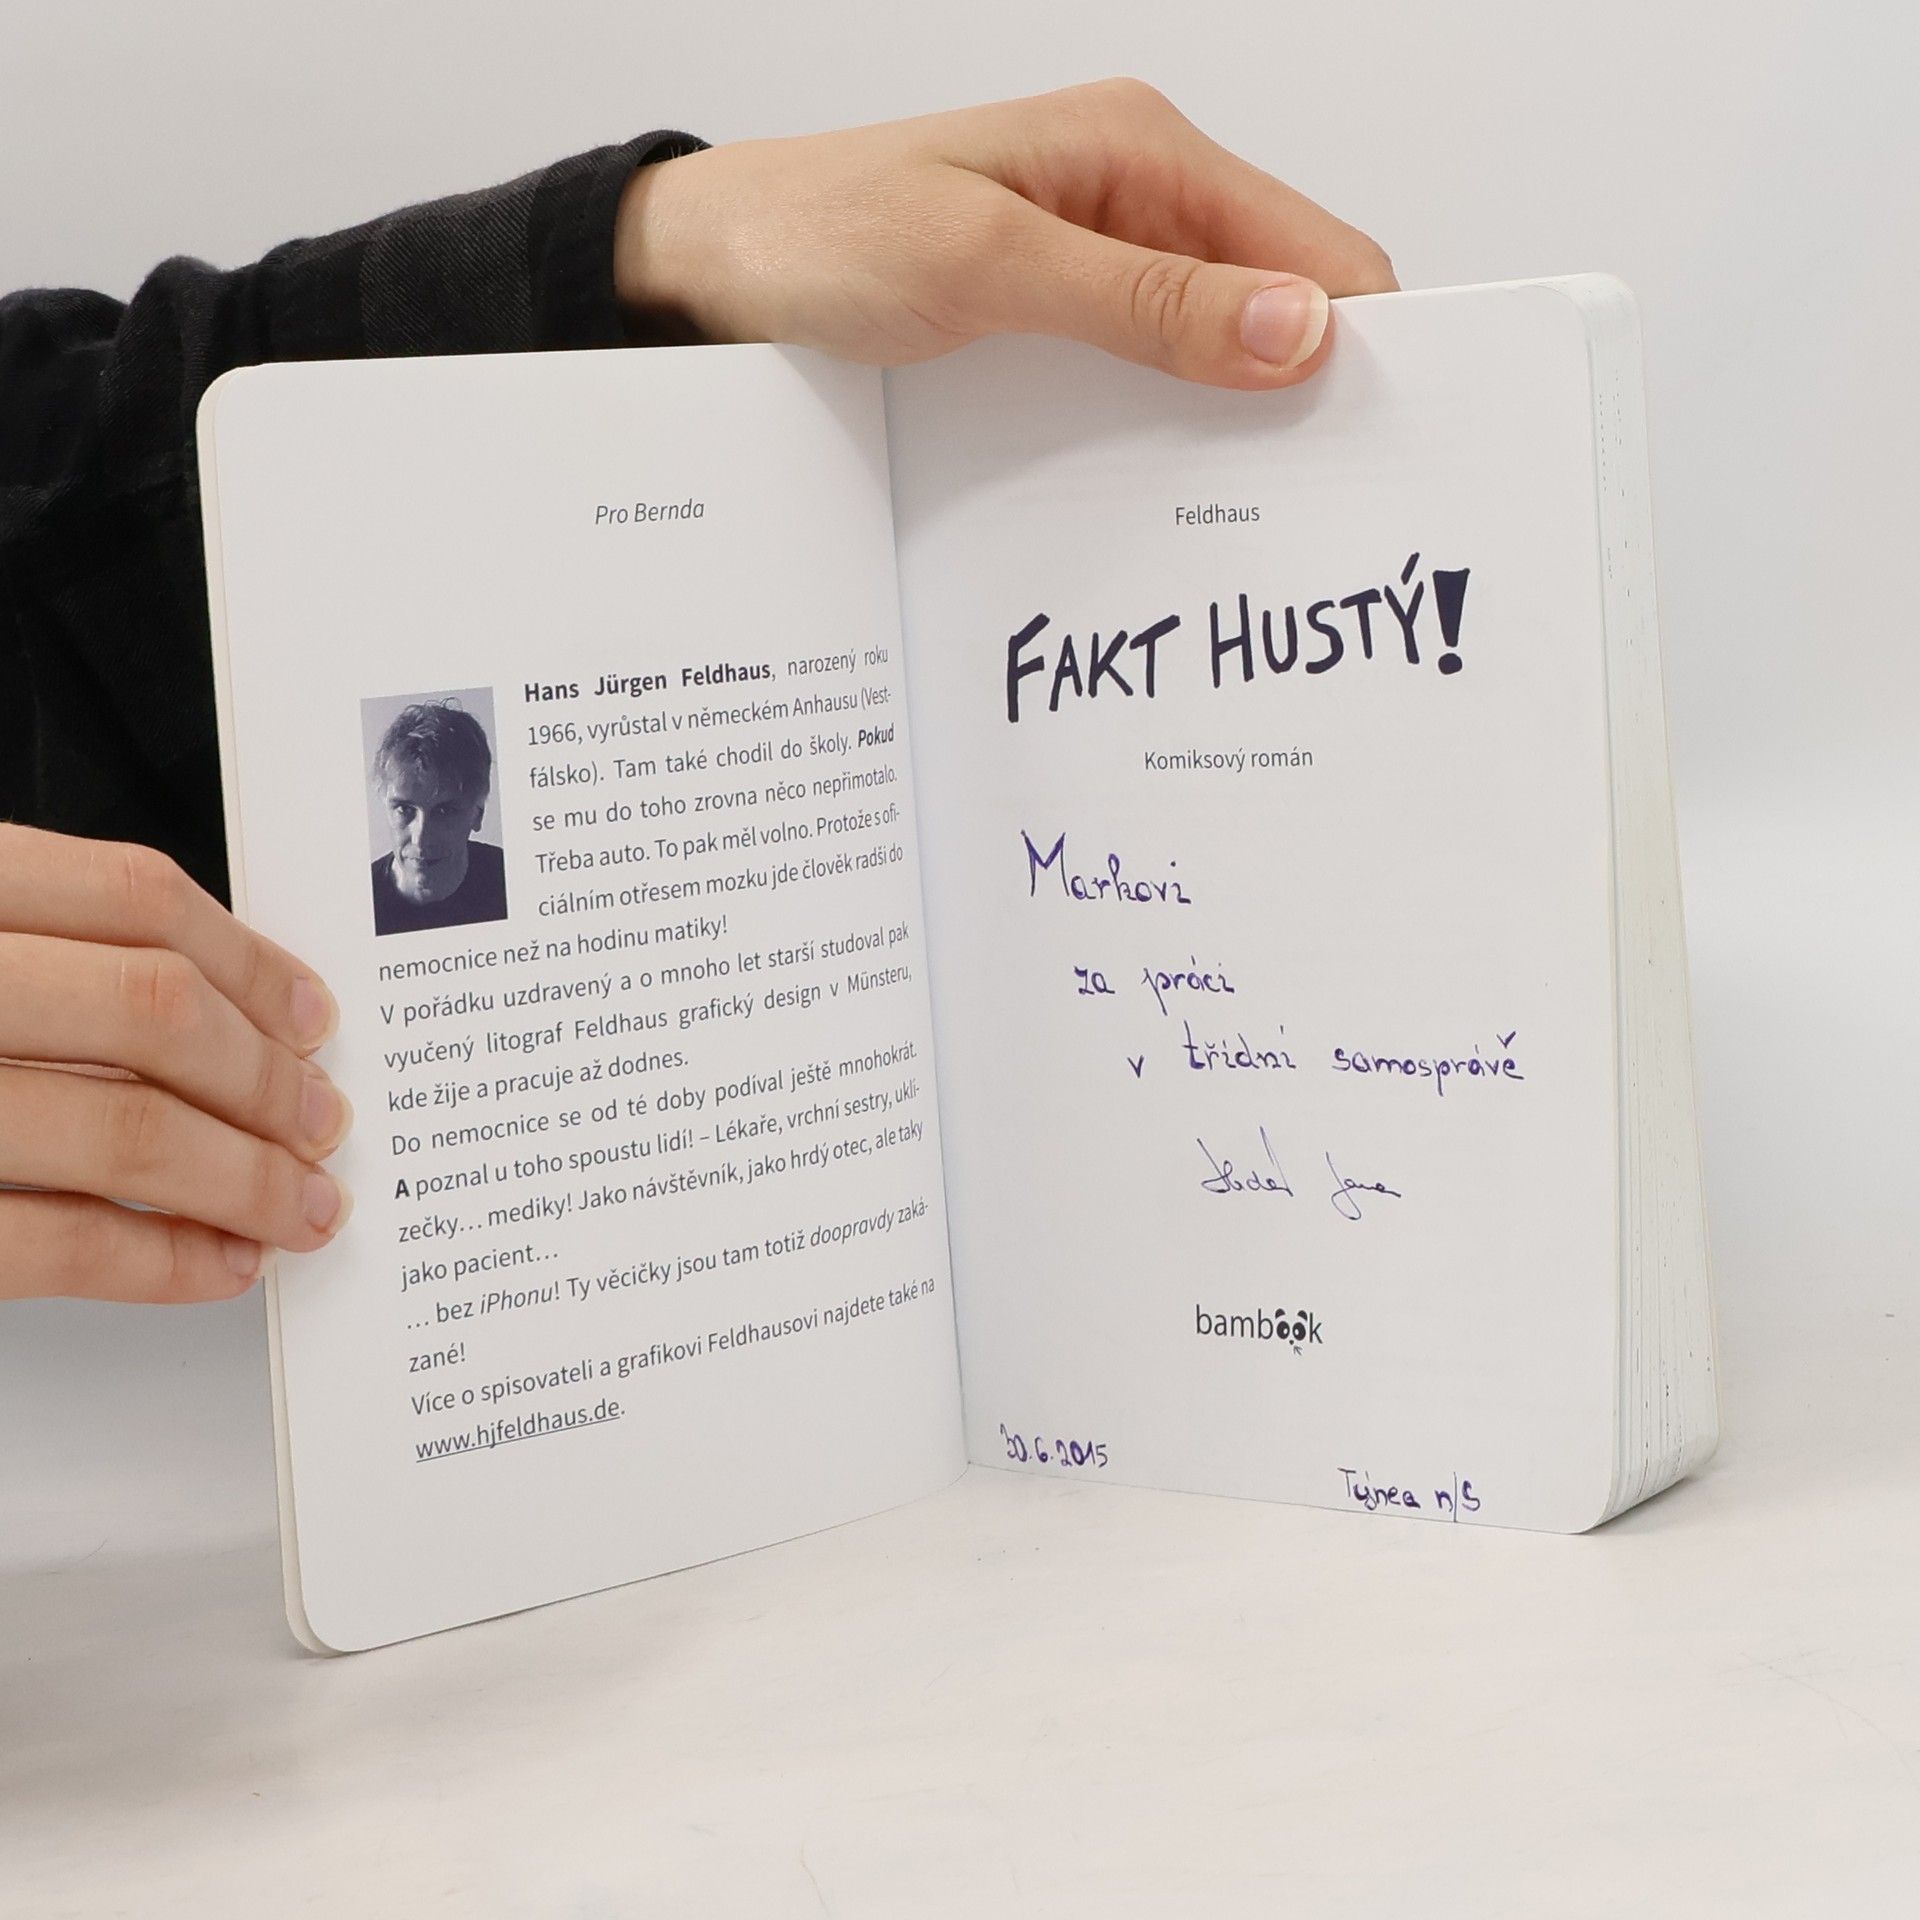 Pro Bernda
Hans Jürgen Feldhaus, narozený roku
1966, vyrůstal v německém Anhausu (Vest-
fálsko). Tam také chodil do školy. Pokud
se mu do toho zrovna něco nepřimotalo.
Třeba auto. To pak měl volno. Protože s ofi-
ciálním otřesem mozku jde člověk radši do
nemocnice než na hodinu matiky!
V pořádku uzdravený a o mnoho let starší studoval pak
vyučený litograf Feldhaus grafický design v Münsteru,
kde žije a pracuje až dodnes.
Do nemocnice se od té doby podíval ještě mnohokrát.
A poznal u toho spoustu lidí! – Lékaře, vrchní sestry, uklí-
zečky... mediky! Jako návštěvník, jako hrdý otec, ale taky
jako pacient...
... bez iPhonu! Ty věcičky jsou tam totiž doopravdy zaká-
zané!
Více o spisovateli a grafikovi Feldhausovi najdete také na
www.hjfeldhaus.de.
Feldhaus
FAKT HUSTÝ!
Komiksový román
Markovi
za práci
v třídní samosprávě
Jana
bambook
30.6.2015
n/S